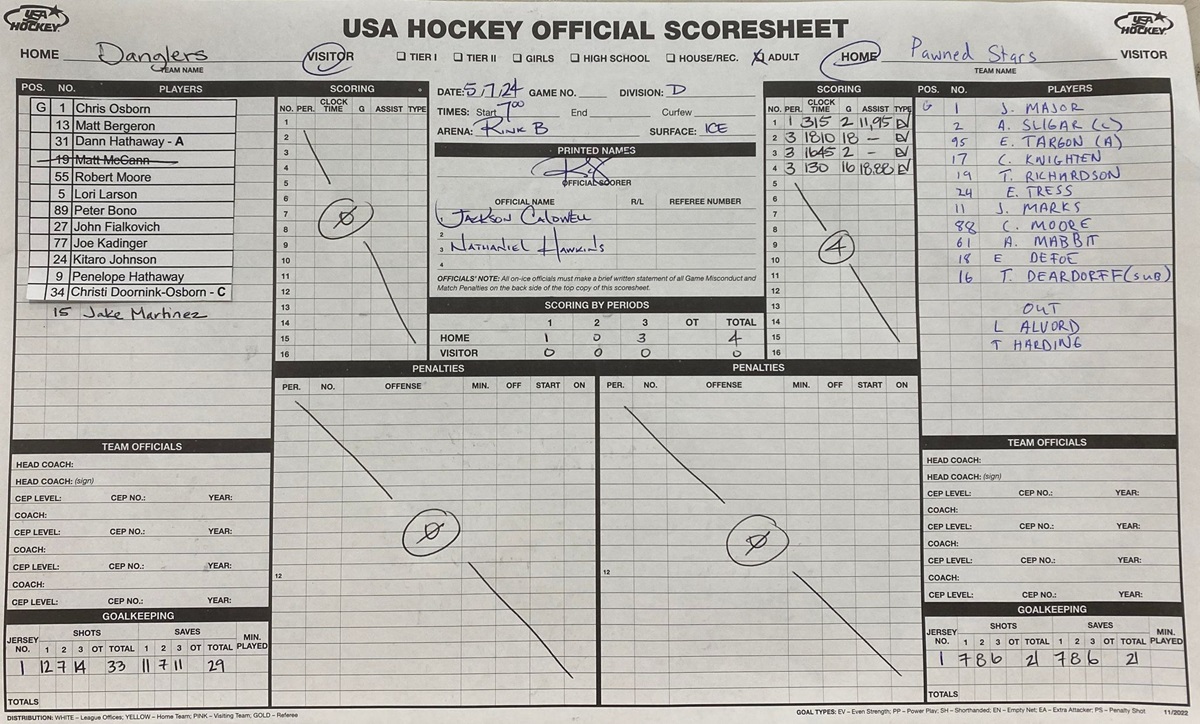 USA HOCKEY
USA HOCKEY OFFICIAL SCORESHEET
USA HOCKEY
HOME Danglers VISITOR
TEAM NAME
TIER I TIER II GIRLS HIGH SCHOOL HOUSE/REC. X ADULT
HOME Pawned Stars VISITOR
TEAM NAME
POS. NO. PLAYERS
G 1 Chris Osborn
13 Matt Bergeron
31 Dann Hathaway - A
19 Matt McCann
55 Robert Moore
5 Lori Larson
89 Peter Bono
27 John Fialkovich
77 Joe Kadinger
24 Kitaro Johnson
9 Penelope Hathaway
34 Christi Doornink-Osborn - C
15 Jake Martinez
SCORING
NO. PER. CLOCK TIME G ASSIST TYPE
1
2
3
4
5
6
7
8
9
10
11
12
13
14
15
16
0
DATE: 5/7/24 GAME NO. DIVISION: D
TIMES: Start 7:00 End Curfew
ARENA: RINK B SURFACE: ICE
PRINTED NAMES
OFFICIAL SCORER
OFFICIAL NAME R/L REFEREE NUMBER
1 JACKSON CALDWELL
2
3 NATHANIEL HAWKINS
4
OFFICIALS' NOTE: All on-ice officials must make a brief written statement of all Game Misconduct and
Match Penalties on the back side of the top copy of this scoresheet.
SCORING BY PERIODS
1 2 3 OT TOTAL
HOME 1 0 3 4
VISITOR 0 0 0 0
SCORING
NO. PER. CLOCK TIME G ASSIST TYPE
1 1 315 2 11,95 EV
2 3 1810 18 - EV
3 3 1645 2 - EV
4 3 130 16 18,88 EV
5
6
7
8
9
10
11
12
13
14
15
16
4
POS. NO. PLAYERS
G 1 J. MAJOR
2 A. SLIGAR (C)
95 E. TARGON (A)
17 C. KNIGHTEN
19 T. RICHARDSON
24 E. TRESS
11 J. MARKS
88 C. MOORE
61 A. MABBIT
18 E DEFOE
16 T. DEARDORFF (SUB)
OUT
L ALVORD
T HARDING
PENALTIES
PER. NO. OFFENSE MIN. OFF START ON
0
12
PENALTIES
PER. NO. OFFENSE MIN. OFF START ON
0
12
TEAM OFFICIALS
HEAD COACH:
HEAD COACH: (sign)
CEP LEVEL: CEP NO.: YEAR:
COACH:
CEP LEVEL: CEP NO.: YEAR:
COACH:
CEP LEVEL: CEP NO.: YEAR:
COACH:
CEP LEVEL: CEP NO.: YEAR:
GOALKEEPING
JERSEY NO. SHOTS SAVES MIN. PLAYED
1 2 3 OT TOTAL 1 2 3 OT TOTAL
1 12 7 14 33 11 7 11 29
TOTALS
TEAM OFFICIALS
HEAD COACH:
HEAD COACH: (sign)
CEP LEVEL: CEP NO.: YEAR:
COACH:
CEP LEVEL: CEP NO.: YEAR:
COACH:
CEP LEVEL: CEP NO.: YEAR:
COACH:
CEP LEVEL: CEP NO.: YEAR:
GOALKEEPING
JERSEY NO. SHOTS SAVES MIN. PLAYED
1 2 3 OT TOTAL 1 2 3 OT TOTAL
1 7 8 6 21 7 8 6 21
TOTALS
DISTRIBUTION: WHITE – League Offices; YELLOW – Home Team; PINK – Visiting Team; GOLD – Referee
GOAL TYPES: EV – Even Strength; PP – Power Play; SH – Shorthanded; EN – Empty Net; EA – Extra Attacker; PS – Penalty Shot 11/2022